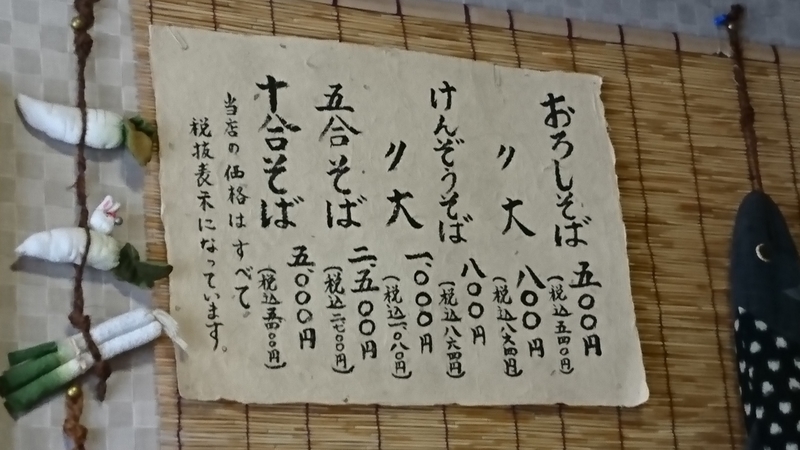 おろしそば 五〇〇円
(税込五四〇円)
〃 大 八〇〇円
(税込八六四円)
けんぞうそば 八〇〇円
(税込八六四円)
〃 大 一、〇〇〇円
(税込一、〇八〇円)
五合そば 二、五〇〇円
(税込二、七〇〇円)
十合そば 五、〇〇〇円
(税込五、四〇〇円)
当店の価格はすべて。
税抜表示になっています。